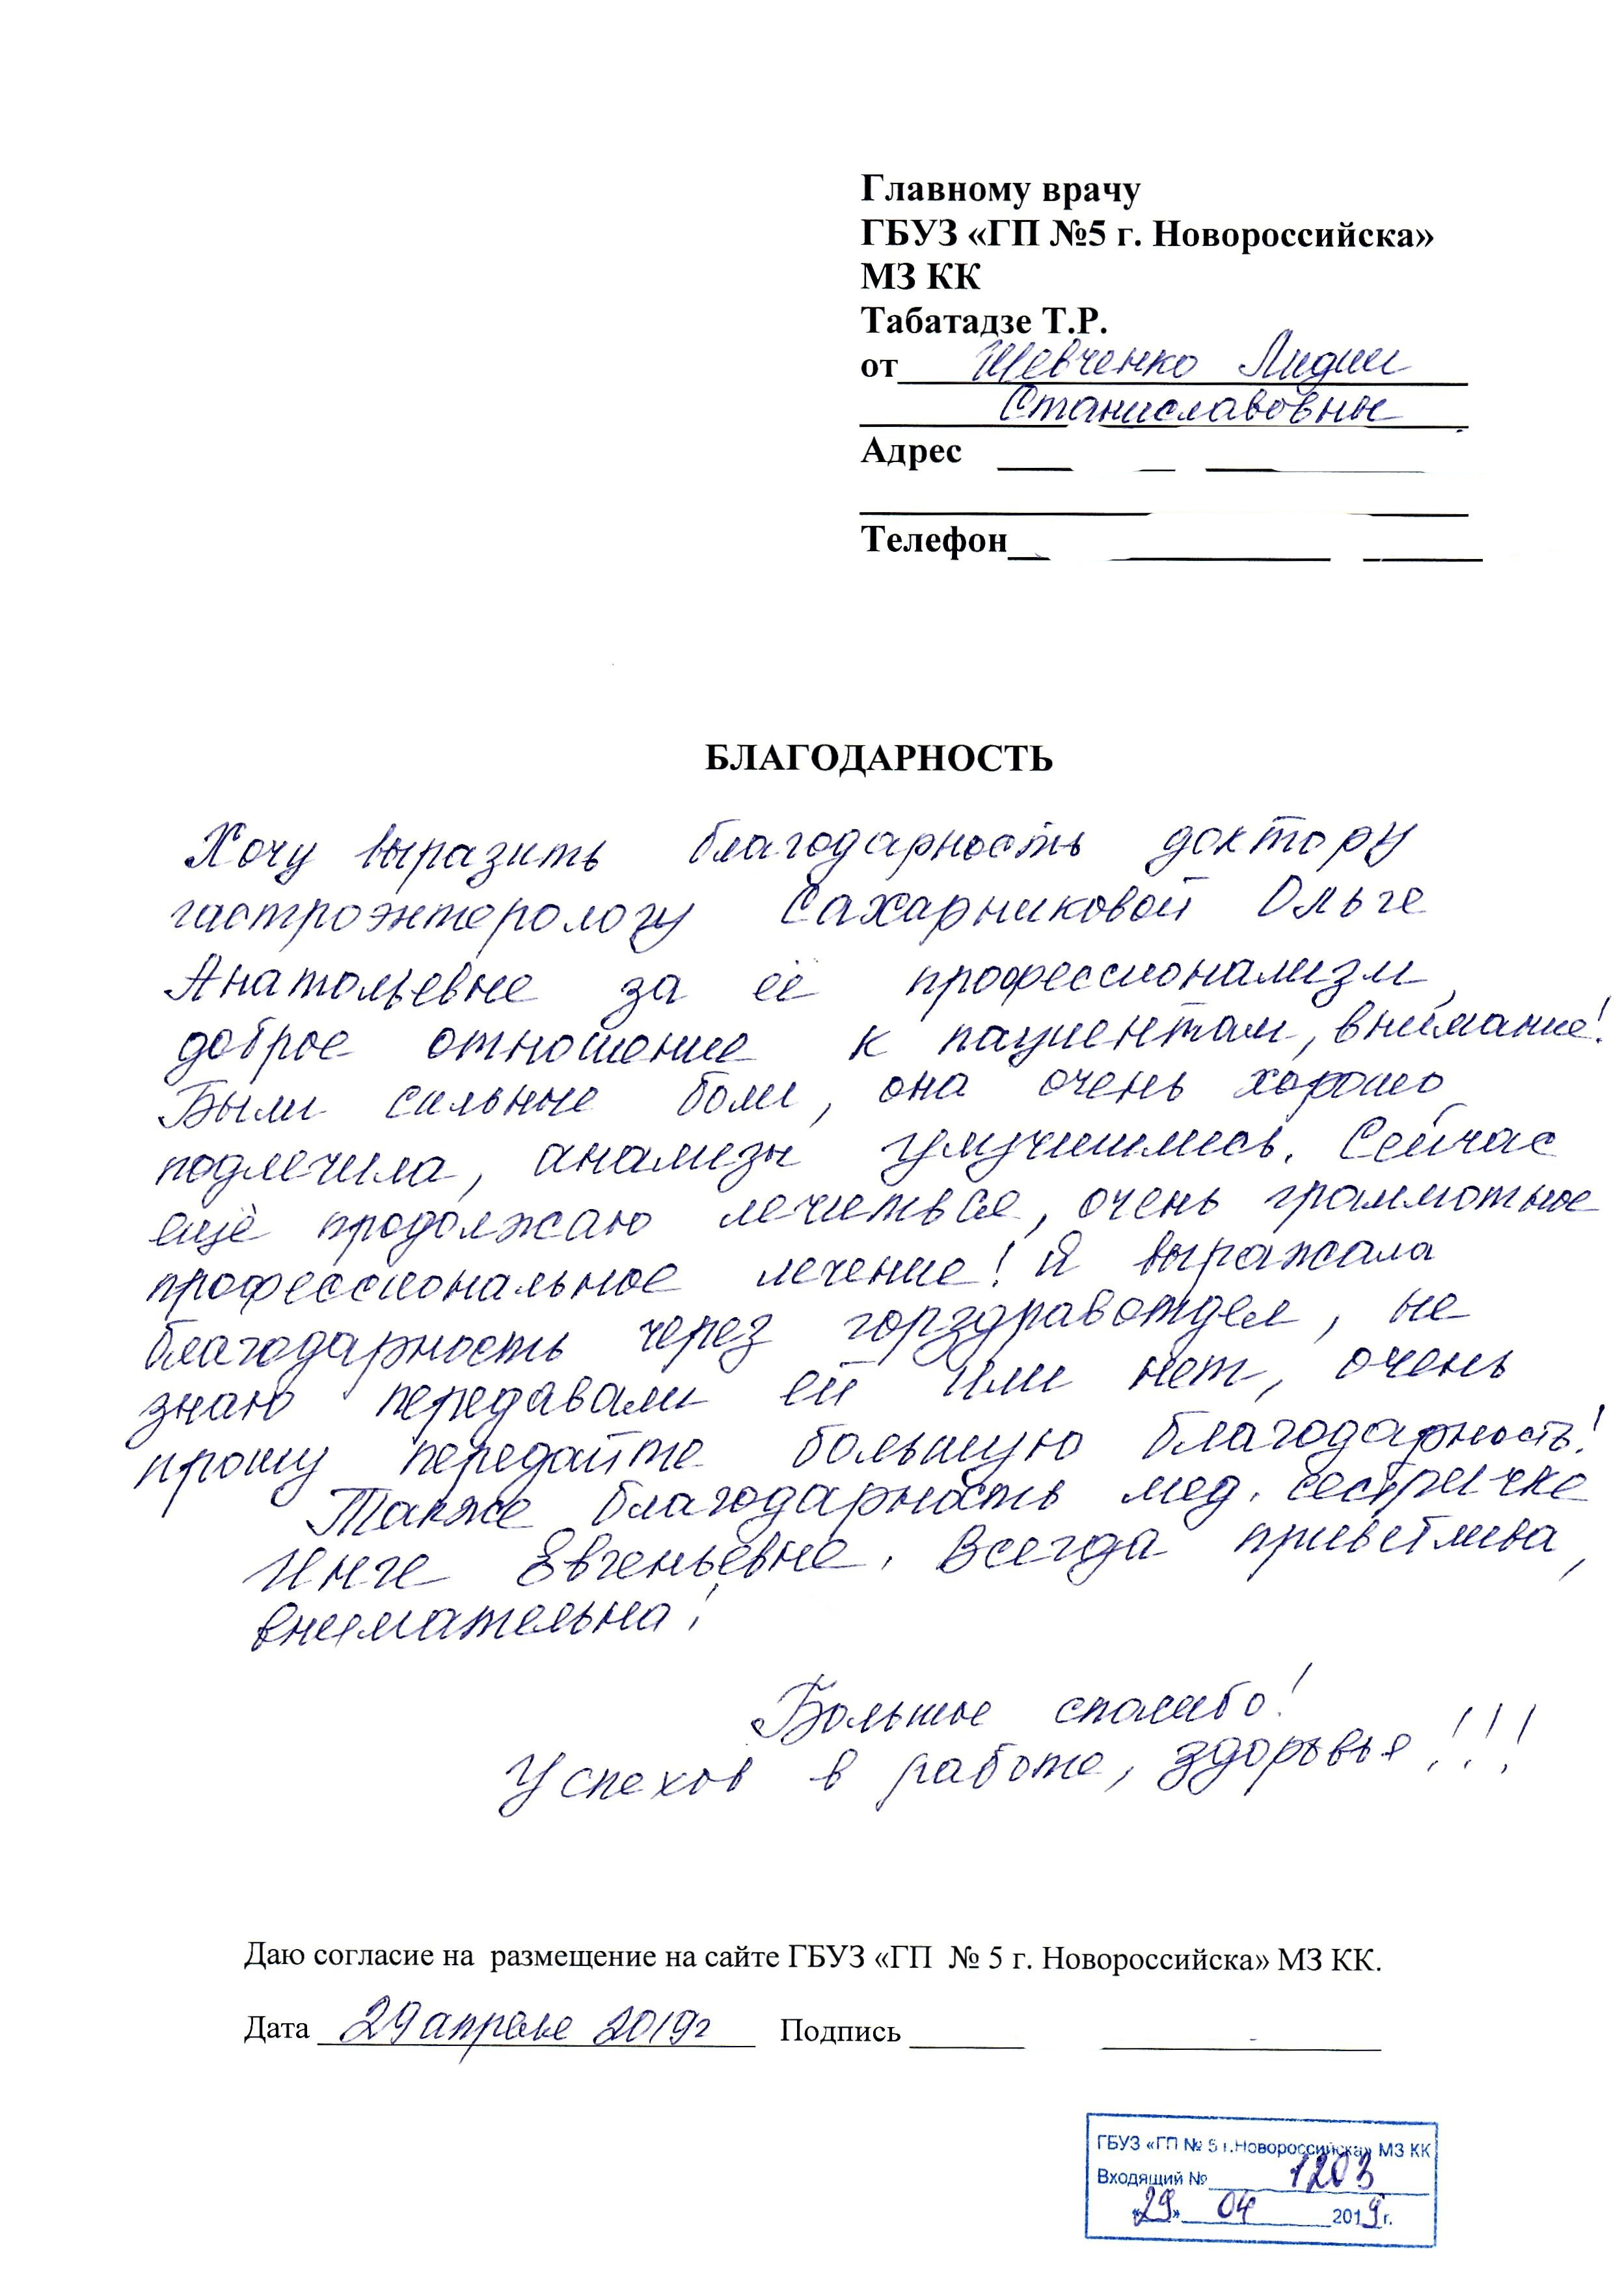 Главному врачу
ГБУЗ «ГП №5 г. Новороссийска»
МЗ КК
Табатадзе Т.Р.
от Шевченко Лидии
Станиславовны
Адрес
Телефон
БЛАГОДАРНОСТЬ
Хочу выразить благодарность доктору
гастроэнтерологу Сахарниковой Ольге
Анатольевне за её профессионализм,
доброе отношение к пациентам, внимание!
Были сильные боли, она очень хорошо
подлечила, анализы улучшились. Сейчас
ещё продолжаю лечиться, очень граммотное
профессиональное лечение! Я выражала
благодарность через горздравотдел, не
знаю передавали ей или нет, очень
прошу передайте большую благодарность!
Также благодарность мед. сестричке
Инге Евгеньевне. Всегда приветлива,
внимательна!
Большое спасибо!
Успехов в работе, здоровья!!!
Даю согласие на размещение на сайте ГБУЗ «ГП № 5 г. Новороссийска» МЗ КК.
Дата 29 апреля 2019г Подпись
ГБУЗ «ГП № 5 г.Новороссийска» МЗ КК
Входящий № 1203
«29» 04 2019г.